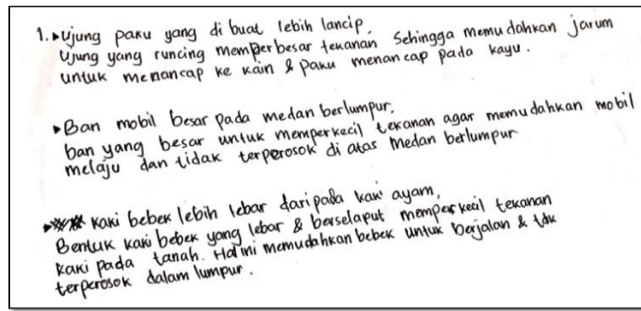 1. Ujung paku yang di buat lebih lancip,
Ujung yang runcing memperbesar tekanan sehingga memudahkan jarum
untuk menancap ke kain & paku menancap pada kayu.
Ban mobil besar pada medan berlumpur,
ban yang besar untuk memperkecil tekanan agar memudahkan mobil
melaju dan tidak terperosok di atas medan berlumpur
Kaki bebek lebih lebar daripada kaki ayam,
Bentuk kaki bebek yang lebar & berselaput memperkecil tekanan
kaki pada tanah. Hal ini memudahkan bebek untuk berjalan & tdk
terperosok dalam lumpur.